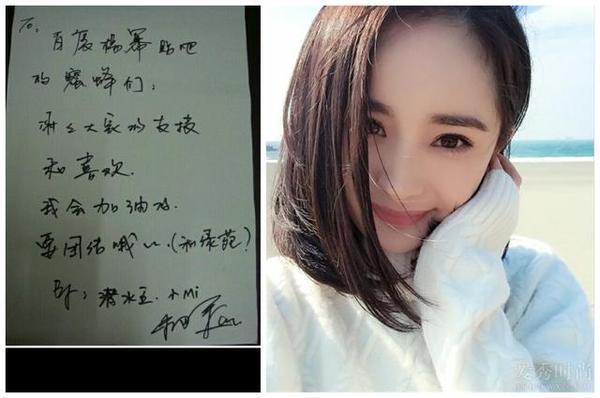 To,
百度杨幂贴吧
的蜜蜂们:
谢々大家的支持
和喜欢.
我会加油
要团结哦~.(和绿苑?)
By: 潜水王.小Mi
杨幂
爱秀时尚